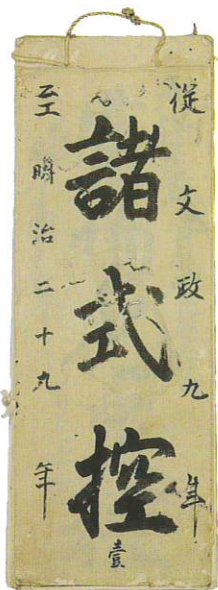 從文政九年
諸式控
壹
至明治二十九年